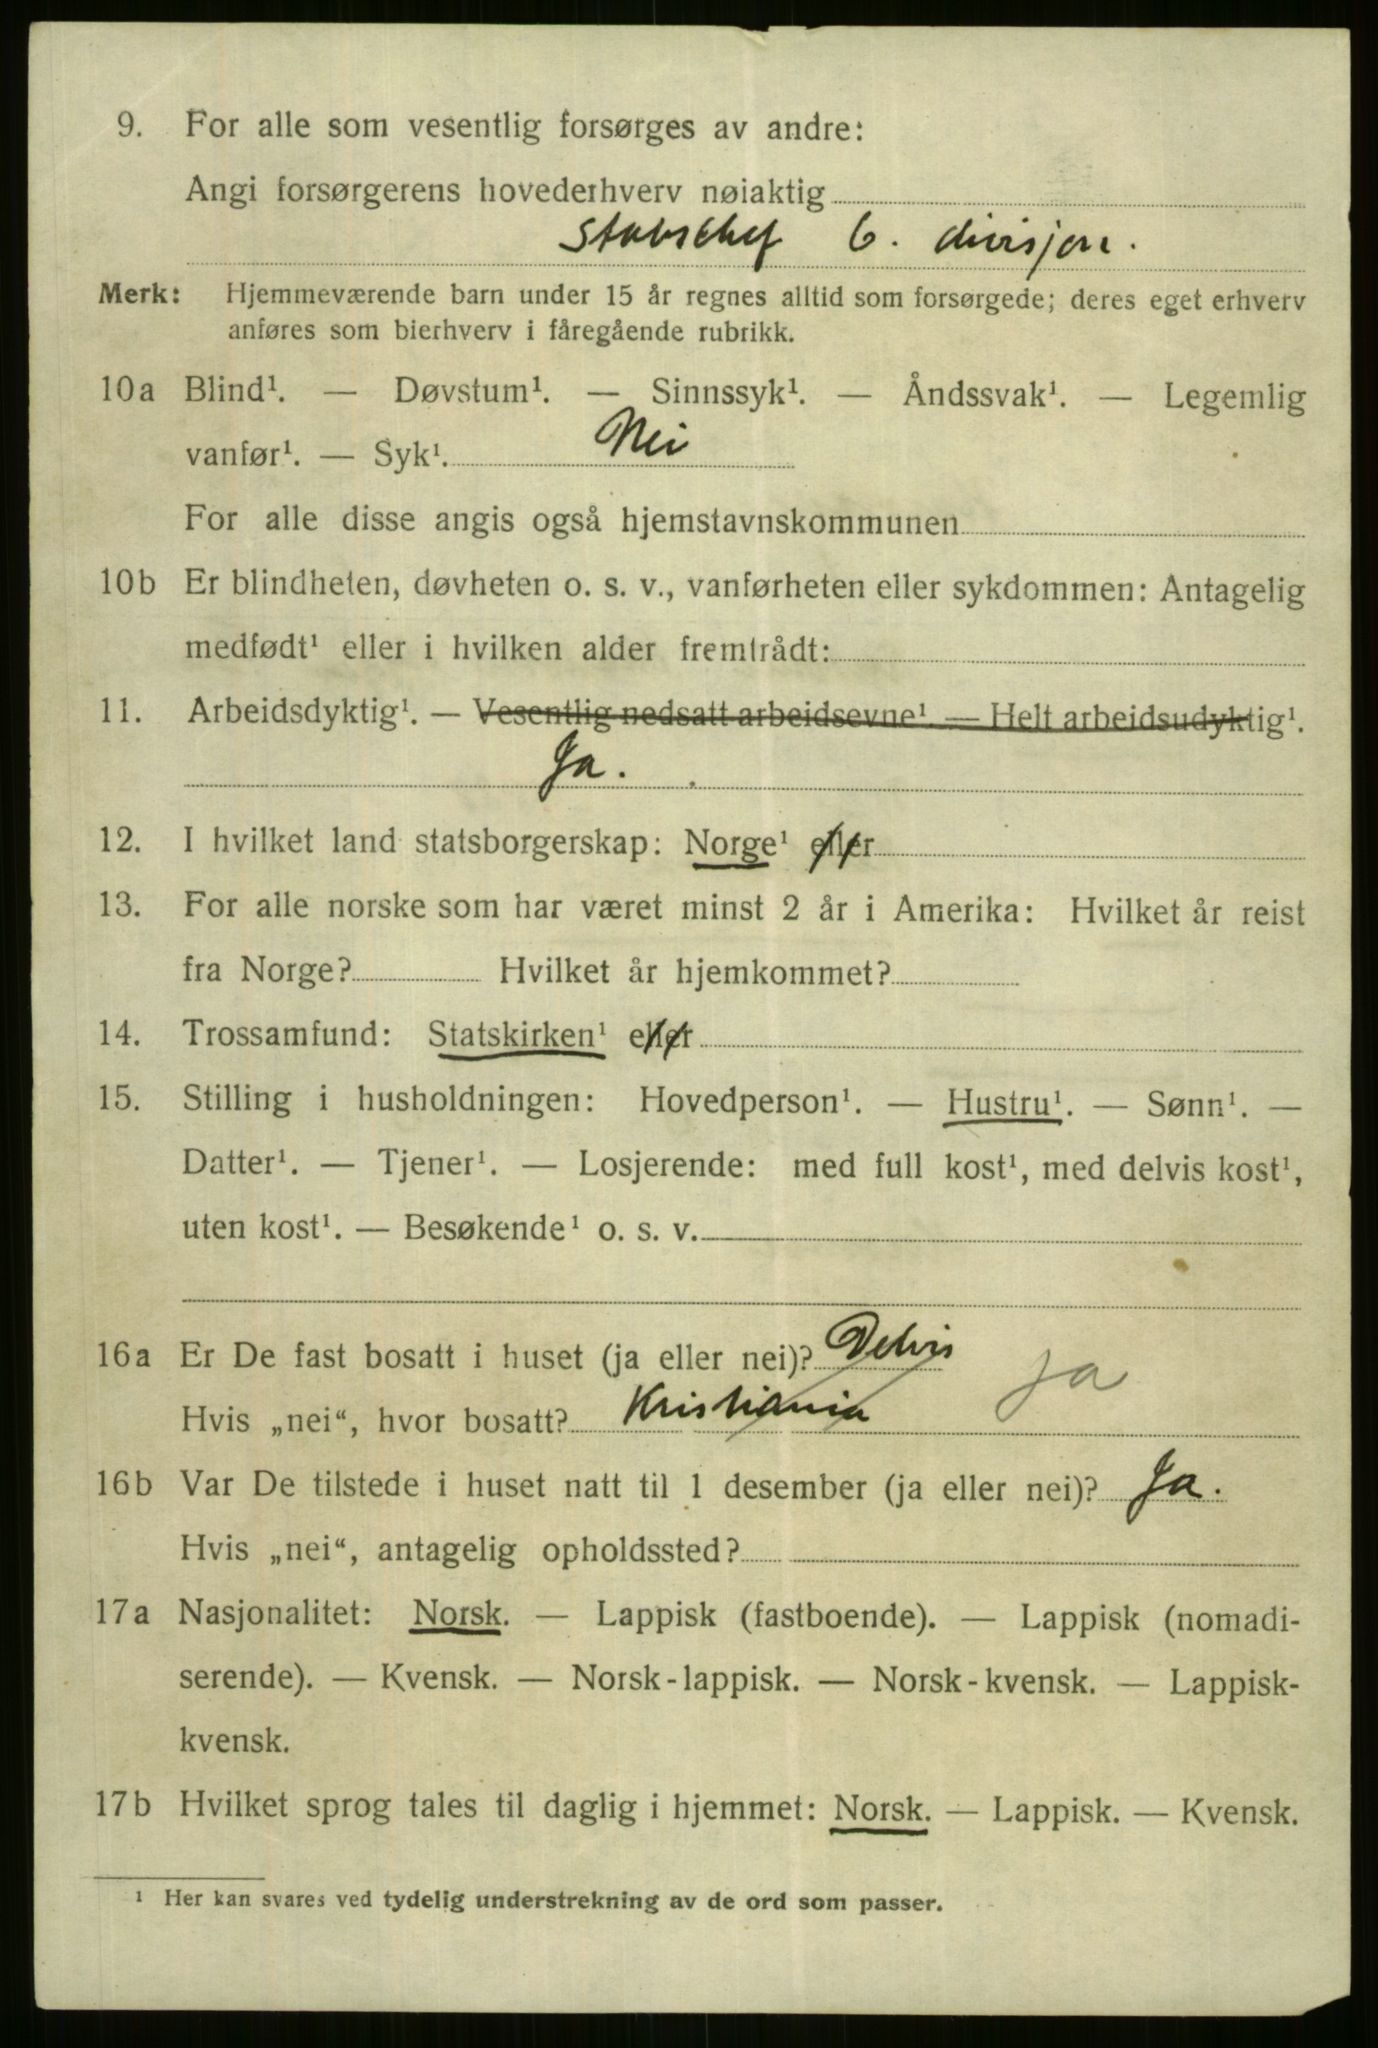 9. For alle som vesentlig forsørges av andre:
Angi forsørgerens hovederhverv nøiaktig
Stabschef 6. divisjon.
Merk: Hjemmeværende barn under 15 år regnes alltid som forsørgede; deres eget erhverv
anføres som bierhverv i fåregående rubrikk.
10a Blind¹. — Døvstum¹. — Sinnssyk¹. — Åndssvak¹. — Legemlig
vanfør¹. — Syk¹. Nei
For alle disse angis også hjemstavnskommunen
10b Er blindheten, døvheten o. s. v., vanførheten eller sykdommen: Antagelig
medfødt¹ eller i hvilken alder fremtrådt:
11. Arbeidsdyktig¹. — Vesentlig nedsatt arbeidsevne¹. — Helt arbeidsudyktig¹.
Ja.
12. I hvilket land statsborgerskap: Norge¹ eller
13. For alle norske som har været minst 2 år i Amerika: Hvilket år reist
fra Norge? Hvilket år hjemkommet?
14. Trossamfund: Statskirken¹ eller
15. Stilling i husholdningen: Hovedperson¹. — Hustru¹. — Sønn¹. —
Datter¹. — Tjener¹. — Losjerende: med full kost¹, med delvis kost¹,
uten kost¹. — Besøkende¹ o. s. v.
16a Er De fast bosatt i huset (ja eller nei)? Delvis ja
Hvis „nei“, hvor bosatt? Kristiania
16b Var De tilstede i huset natt til 1 desember (ja eller nei)? Ja.
Hvis „nei“, antagelig opholdssted?
17a Nasjonalitet: Norsk. — Lappisk (fastboende). — Lappisk (nomadi-
serende). — Kvensk. — Norsk-lappisk. — Norsk-kvensk. — Lappisk-
kvensk.
17b Hvilket sprog tales til daglig i hjemmet: Norsk. — Lappisk. — Kvensk.
¹ Her kan svares ved tydelig understrekning av de ord som passer.